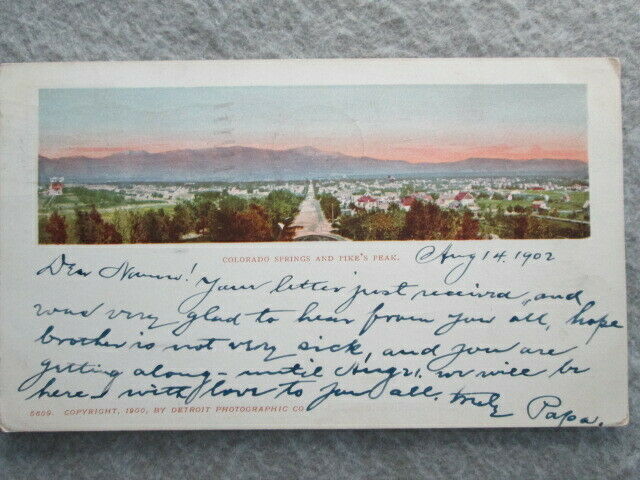 COLORADO SPRINGS AND PIKE'S PEAK.
Aug 14. 1902
Dear
Your letter just received, and
was very glad to hear from you all, hope
brother is not very sick, and you are
getting along - until we will be
here. with love to you all. Papa.
5609. COPYRIGHT, 1900, BY DETROIT PHOTOGRAPHIC CO